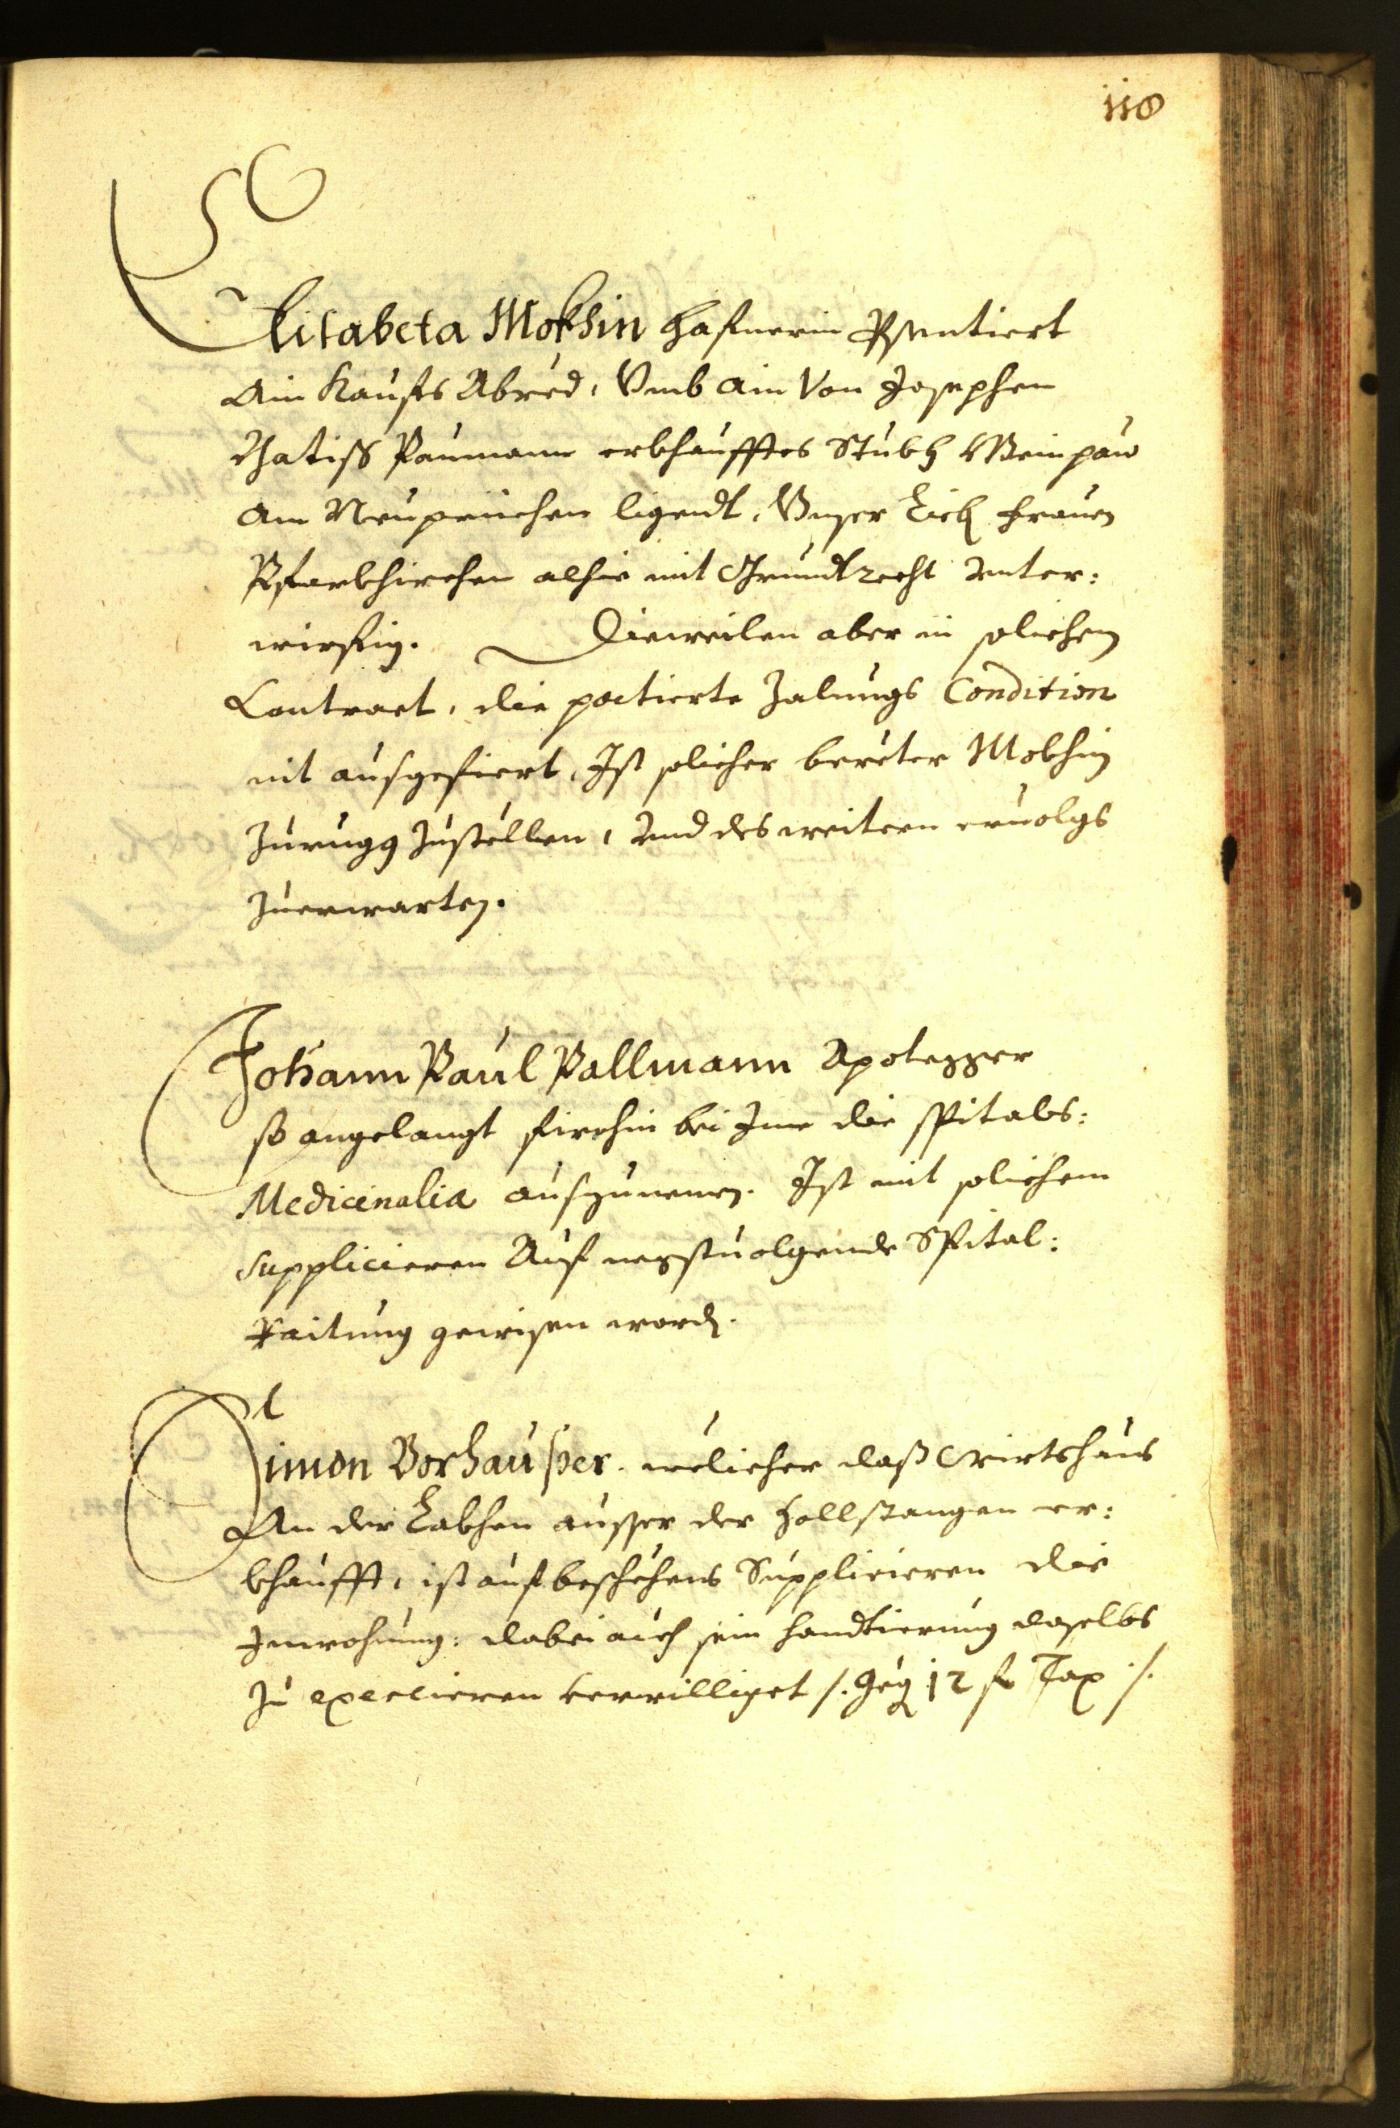 118
Elisabeta Mokhin Hafnerin Pręsentiert
Ain Kaufs Abred, Umb ain Von Josephen
Matiss Paumann erkhaufftes Stukh Weinpau
am Neuprüchen ligendt, Unser Lieb Frauen
Pfarkhirchen alhie mit Grundtrecht unter:
wirfig. Dieweilen aber in solichen
Contract, die pactierte Zalungs Condition
nit ausgefiert, Ist solicher berüter Mokhin
Zurugg Zustellen, und des weitern ervolgs
Zuerwarten.
Johann Paul Pallmann Apotegger
so angelangt firohin bei Ime die Spitals:
Medicinalia aufzunemen. Ist mit solichem
supplicieren Auf negstvolgende Spital:
Raitung gewisen worden.
Simon Vorhauser. welicher daß Wirtshaus
An der Lakhen ausser der Zollstangen er:
khaufft, ist auf beschehens Supplicieren die
Inwohnung: dabei auch sein Handtierung daselbs
Zu exercieren verwilliget /. Geg 12 fl Tax ./.